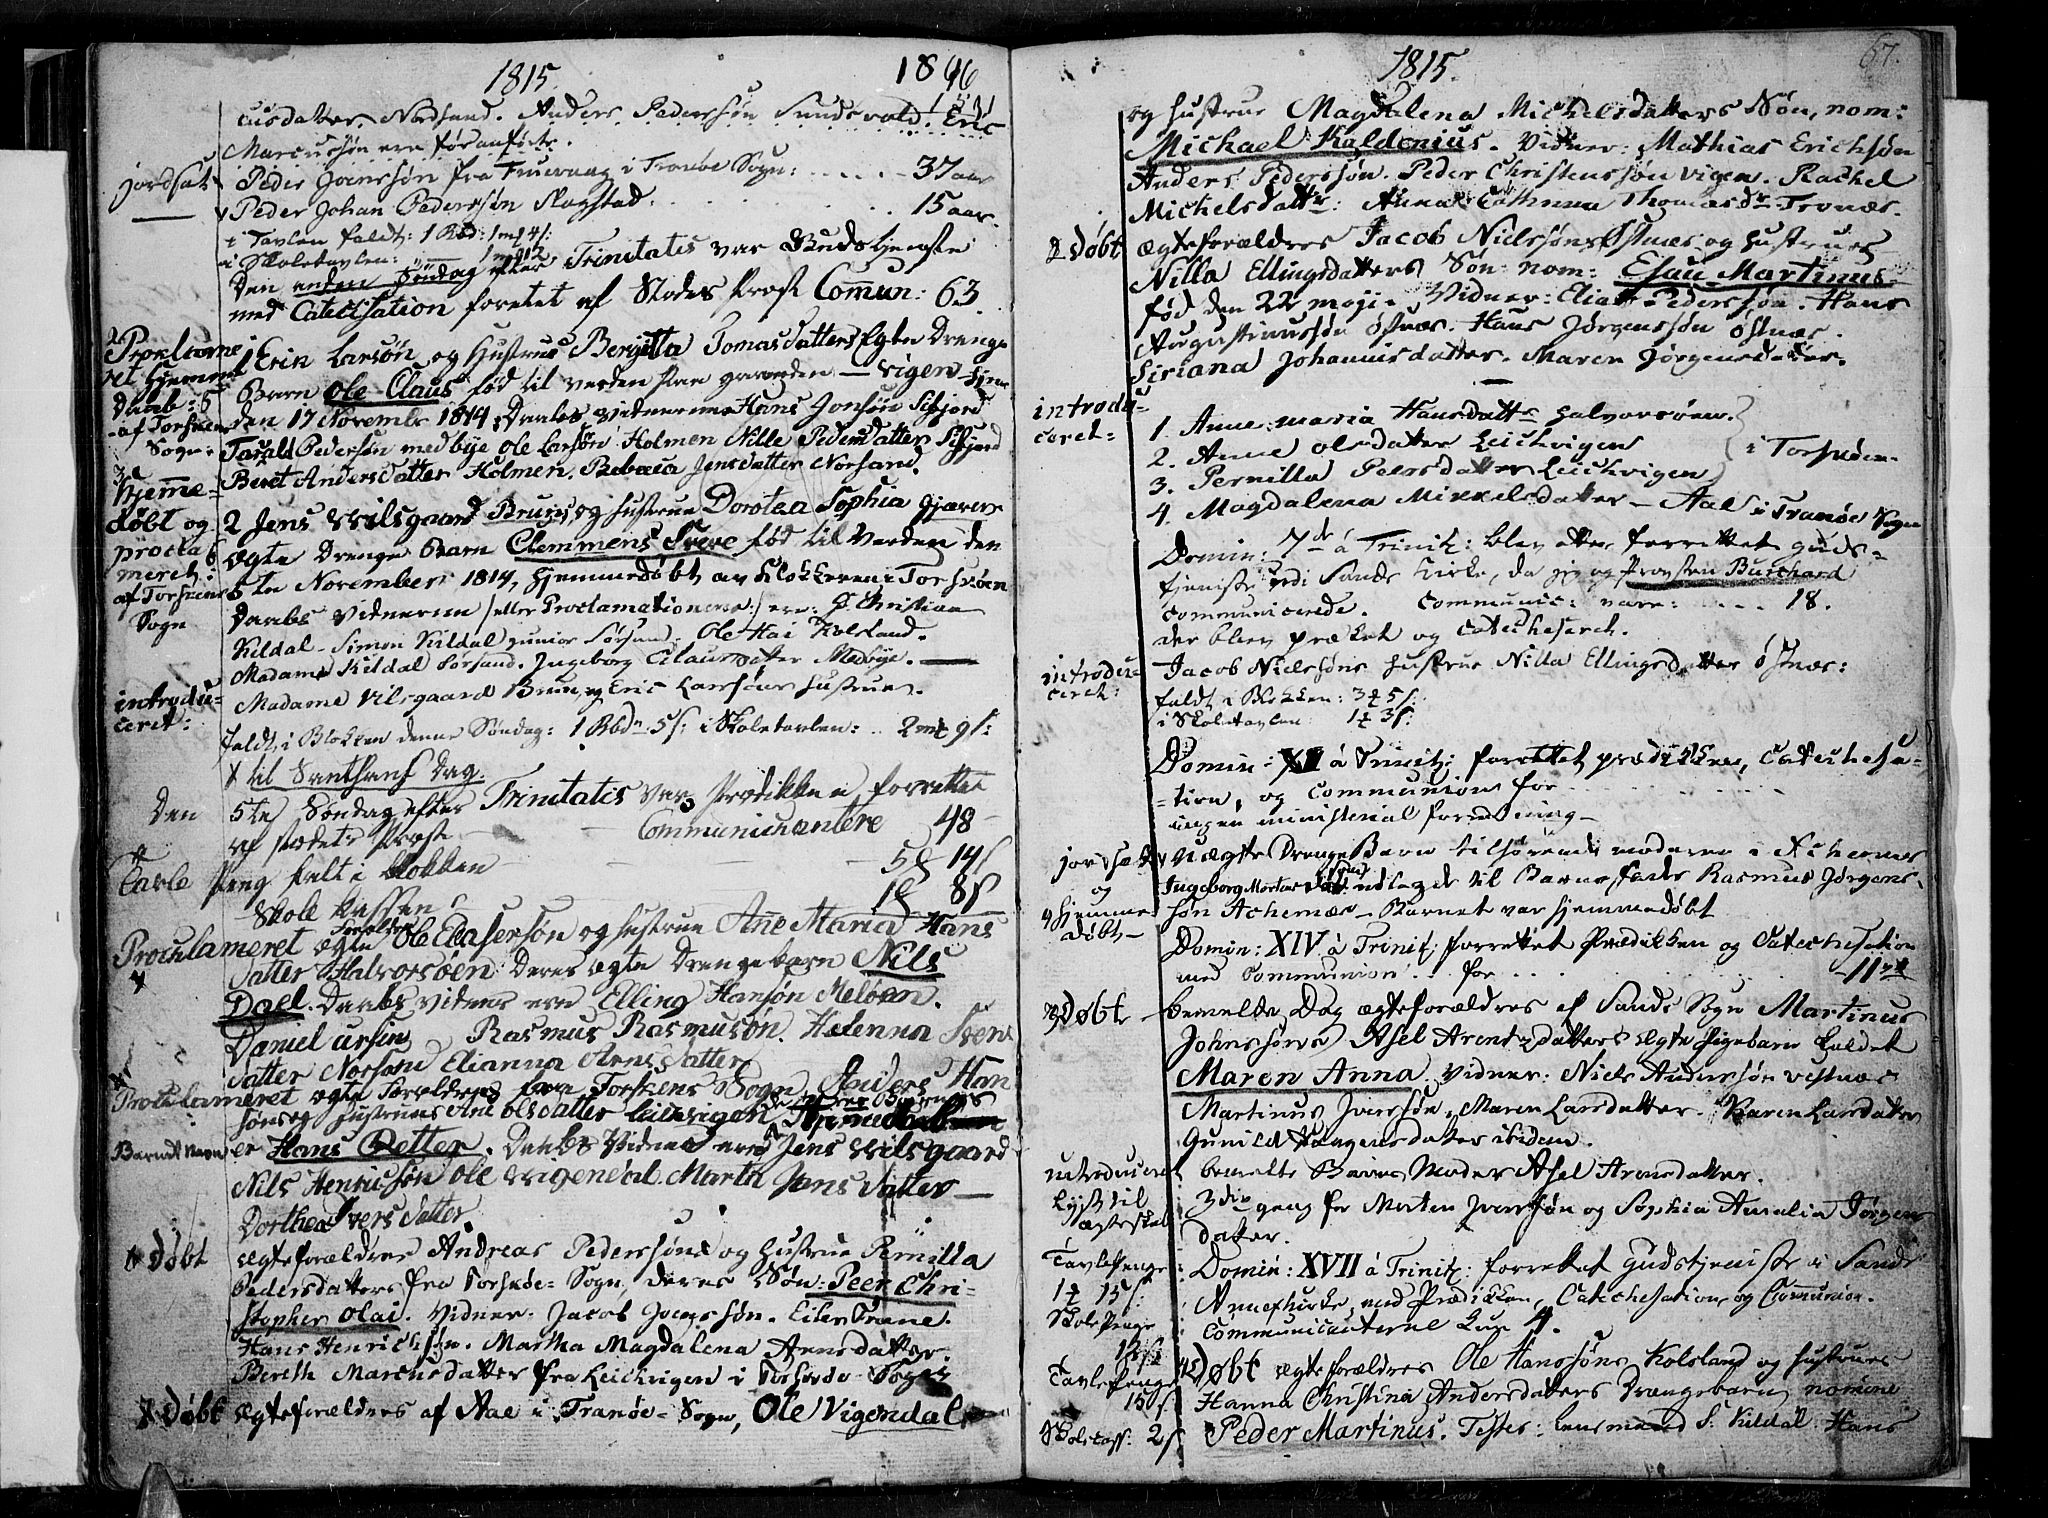 1815. 1816
cusdatter Nordsand. Anders Pederssøn Sundsvold. Eric
Marcussøn ere før anførte.
jordsat Peder Joenssøn fra Truevaag i Tranøe Sogn: 37 aar
Peder Johan Pederssøn Slogstad. 15 aar.
i Tavlen faldt: 1 Rbd: 1 mk 4 s:
i Skoletavlen: 1 mk 12
Den anden Søndag efter Trinitatis var Gudstjeneste
med Catechisation foretet af Stedes Præst Commun: 63.
Hjemmet
Daab: 5
af Torskens
Sogn:
1 Erik Larsøn og Hustrue Bergitta Tomasdatters Egte Drenge
Barn Ole Claus fød til verden
den 17 November 1814, Daabs vidnerne Hans Jonsøn Sifjord
Tarald Pedersøn medbye Ole Larsøn Holmen Nille Pedersdatter Sifjord
Beret Andersdatter Holmen. Rebecca Jensdatter Norsand.
3 hjemme-
døbt og
procla-
meret:
af Torskens
Sogn
2 Jens Wilsgaard Bruun og hustrue Dorotea Sophia Gjæver
ægte Drenge Barn Clemmens Sverre fød til Verden den
6te November 1814, hjemmedøbt av Klokkeren i Torskøen
Daabs Vidnerne /: eller Proclamationerne :/ ere: Christian
Kildal - Simon Kildal junior Sørsand: Ole Hai Kolsland.
Madame Kildal Sørsand. Ingeborg Clausdatter Medbye.
introdu-
ceret:
Madame Vilsgaard Bruun, og Eric Larsøns Hustrue.
faldt i Blokken denne Søndag: 1 Rbd 5 s: i Skoletavlen: 2 mk 9 s:
til Santhans Dag.
Den 5te Søndag efter Trinitatis var Prædikken forrettet
af stædets Præst Communichantere 48
Tavle Peng falt i blokken 5 14 s
Skole Kassen 1 8 s
Proclameret ægte Forældre Ole Eliasersøn og Hustrue Ane Maria Hans
4 datter Halvorsøen. Deres ægte Drengebarn Nils
Dael. Daabs vidner ere Elling Hansøn Meløen.
Daniel Rasmus Rasmusøn. Helenna Svens
datter Norsand Elianna Arnsdatter
Proclameret ægte Foreldre fra Torskens Sogn Anders Han
søn og hustrue Ane olsdatter Leikvigen
Barnet Navn er Hans Petter. Daabs Vidner ere Jens Wilsgaard
Nils Henrichsøn Ole Wigendal. Marta Jensdatter
Dorthea Iversdatter.
døbt ægteforældre Andreas Pederssøns og Hustrue Pernilla
Pedersdatters fra Torsøde-Sogn, deres Søn: Peer Chri-
stopher Olai. Vidner: Jacob Joenssøn. Eiler Trane.
Hans Henrichsøn. Martha Magdalena Arnsdatter.
Bereth Marcusdatter fra Leichvigen i Torsøde-Sogn
døbt ægteforældres af Aae i Tranøe-Sogn, Ole Vigendal
1815. 67.
og hustrue Magdalena Michelsdatters Søn, nom:
Michael Kaldenius. Vidner: Mathias Erichsøn
Anders Pederssøn. Peder Christenssøn Vigen. Rachel
Michelsdattr: Anna Cathrina Thomasdr Tronæs.
2 døbt ægteforældres Jacob Nielssøns Østnæs og hustrues
Nilla Ellingsdatters Søn: nom: Esau Martinus
fød den 22 maji. Vidner: Elias Pederssøn. Hans
Augustinussøn Østnæs. Hans Jørgenssøn Østnæs.
Siriana Johannisdatter. Maren Jørgensdatter.
introdu-
ceret:
1. Anne maria Hansdattr Halvorsøen.
2. Anne olsdatter Leichvigen
3. Pernilla Peersdatter Leichvigen
i Torsøden
4. Magdalena Mikkelsdatter - Aal i Tranøe Sogn
Domin: 7de à Trinit: blev atter forrettet guds-
tjeniste i Sands Kirke, da jeg og Provsten Burchard
communicerede. Communic: vare: 18.
der blev præket og catechiseret.
introdu-
ceret:
Jacob Nielssøns hustrue Nilla Ellingsdatter Østnæs:
faldt i Blokken: 3 5 s:
i Skoletavlen: 1 3 s:
Domin: XII à Trinit: forrettet prædikken, Catechesa-
tion, og Communion for
ingen ministerial forretning -
jordsæt
og
hjemme
døbt -
uægte Drenge Barn tilhørende moderen i Achernes
Ingeborg udlagde til Barne fader Rasmus Jørgens-
søn Achernæs - Barnet var hjemmedøbt
Domin: XIV à Trinit: forrettet Prædikken og Catechesation
med Communion for 11ve
Døbt - bemelte Dag ægteforældres af Sands Sogn Martinus
Johnssøns Asel Arentzdatters ægte Pigebarn kaldet
Maren Anna. Vidner: Niels Anderssøn Vestnæs
Martinus Iverssøn, Maren Larsdatter. Karen Larsdatter
Gunild Haagensdatter ibidem.
introduceret bemelte Barns Moder Asel Arensdatter.
Lyst til
ægteskab
3die gang for Morten Iverssøn og Sophia Amalia Jørgens
datter.
Tavlepenge
1 15 s:
Skole Penge
12 s
Domin: XVII à Trinit: forrettet gudstjeniste i Sands
Annexkirke, med Prædikken, Catechesation, og Communion.
Communicanterne kun 4.
Tavlepenge
15 s
Skolecass: 2 s
Døbt ægteforældres Ole Hanssøns Kolsland og hustrues
Hanna Christina Andersdatters Drængebarn, nomine
Peder Martinus. Testes: Lensmand S: Kildal. Hans